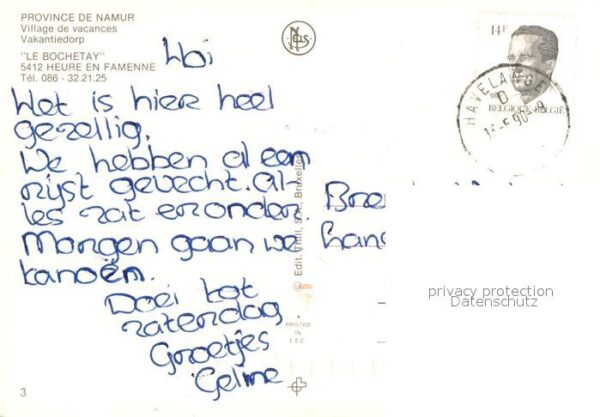 PROVINCE DE NAMUR
Village de vacances
Vakantiedorp
"LE BOCHETAY"
5412 HEURE EN FAMENNE
Tél. 086 - 32.21.25
NELS
14F
BELGIQUE-BELGIË
HAVELANGE
D
90-9
Hoi
Het is hier heel
gezellig.
We hebben al een
rijst gevecht. Al-
les zat eronder.
Morgen gaan we
kanoën.
Doei tot
zaterdag.
Groetjes
Geline
© Edit. Thill, S.A., Bruxelles
PRINTED
IN
EEC
3
privacy protection
Datenschutz